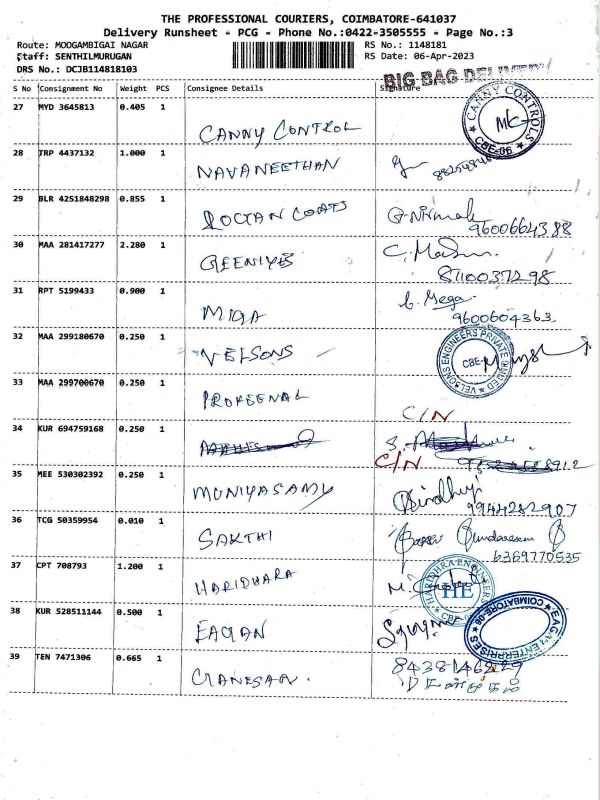 THE PROFESSIONAL COURIERS, COIMBATORE-641037
Delivery Runsheet - PCG - Phone No.:0422-3505555 - Page No.:3
Route: MOOGAMBIGAI NAGAR RS No.: 1148181
Staff: SENTHILMURUGAN RS Date: 06-Apr-2023
DRS No.: DCJB114818103
BIG BAG DELIVERY
S No Consignment No Weight PCS Consignee Details Signature
27 MYD 3645813 0.405 1
CANNY CONTROL
CANNY CONTROLS CBE-06
28 TRP 4437132 1.000 1
NAVANEETHAN
29 BLR 4251848298 0.855 1
COATS G Nirmal
9600664388
30 MAA 281417277 2.280 1
GREENIYES C.
8110037298
31 RPT 5199433 0.900 1
MIGA
9600604363
32 MAA 299180670 0.250 1
VELSONS
VELSONS ENGINEERS PRIVATE LIMITED CBE-
33 MAA 299700670 0.250 1
PROFEENAL
C/N
34 KUR 694759168 0.250 1
C/N
35 MEE 530302392 0.250 1
MUNIYASAMY
9944282907
36 TCG 50359954 0.010 1
SAKTHI Sundaresan
6369770535
37 CPT 708793 1.200 1
HARIDHARA M.
HARIDHRA ENGINEERS HE CBE-
38 KUR 528511144 0.500 1
EAGAN
EAGAN ENTERPRISES COIMBATORE-06
39 TEN 7471306 0.665 1
GANESAN.